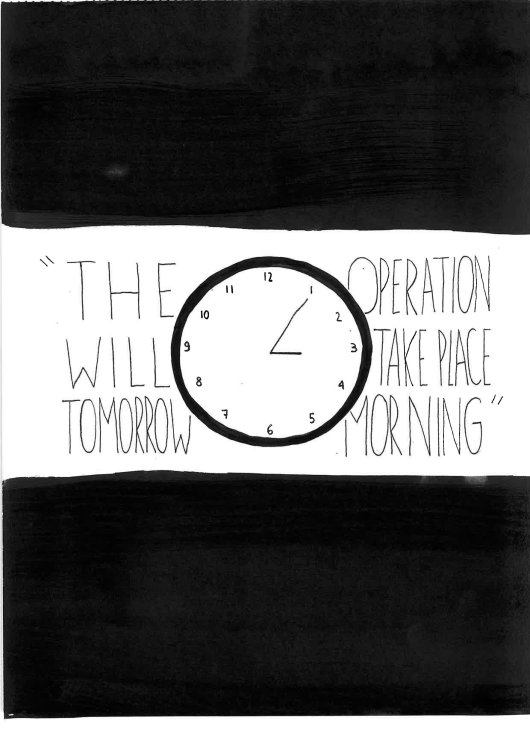 "THE OPERATION
WILL TAKE PLACE
TOMORROW MORNING"
12
1
2
3
4
5
6
7
8
9
10
11